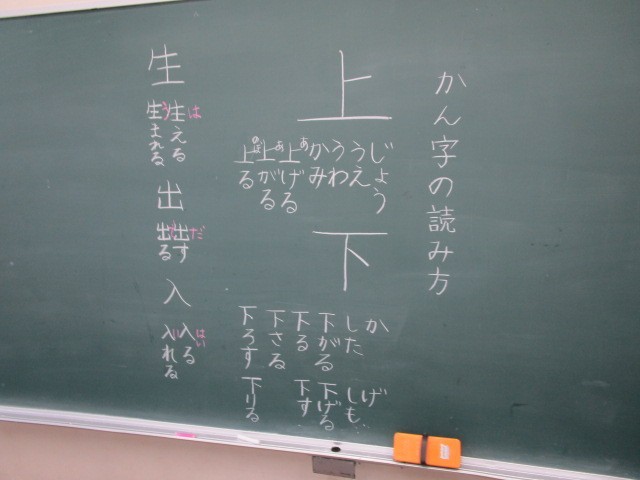 かん字の読み方
上
じょう
うえ
うわ
かみ
あ
上げる
あ
上がる
のぼ
上る
下
か げ
した しも
下がる 下げる
下る 下す
下さる
下ろす 下りる
生
は
生える
う
生まれる
出
だ
出す
で
出る
入
はい
入る
い
入れる